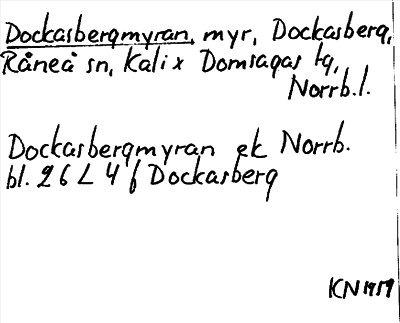 Dockasbergmyran, myr, Dockasberg,
Råneå sn, Kalix Domsagas tg,
Norrb.l.
Dockasbergmyran ek Norrb.
bl. 26 L 4 f Dockasberg
KN 1959